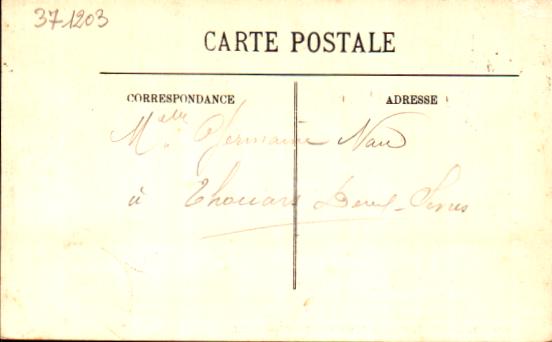 37-1203
CARTE POSTALE
CORRESPONDANCE
ADRESSE
Melle Germaine
à Thouars Deux-Sèvres